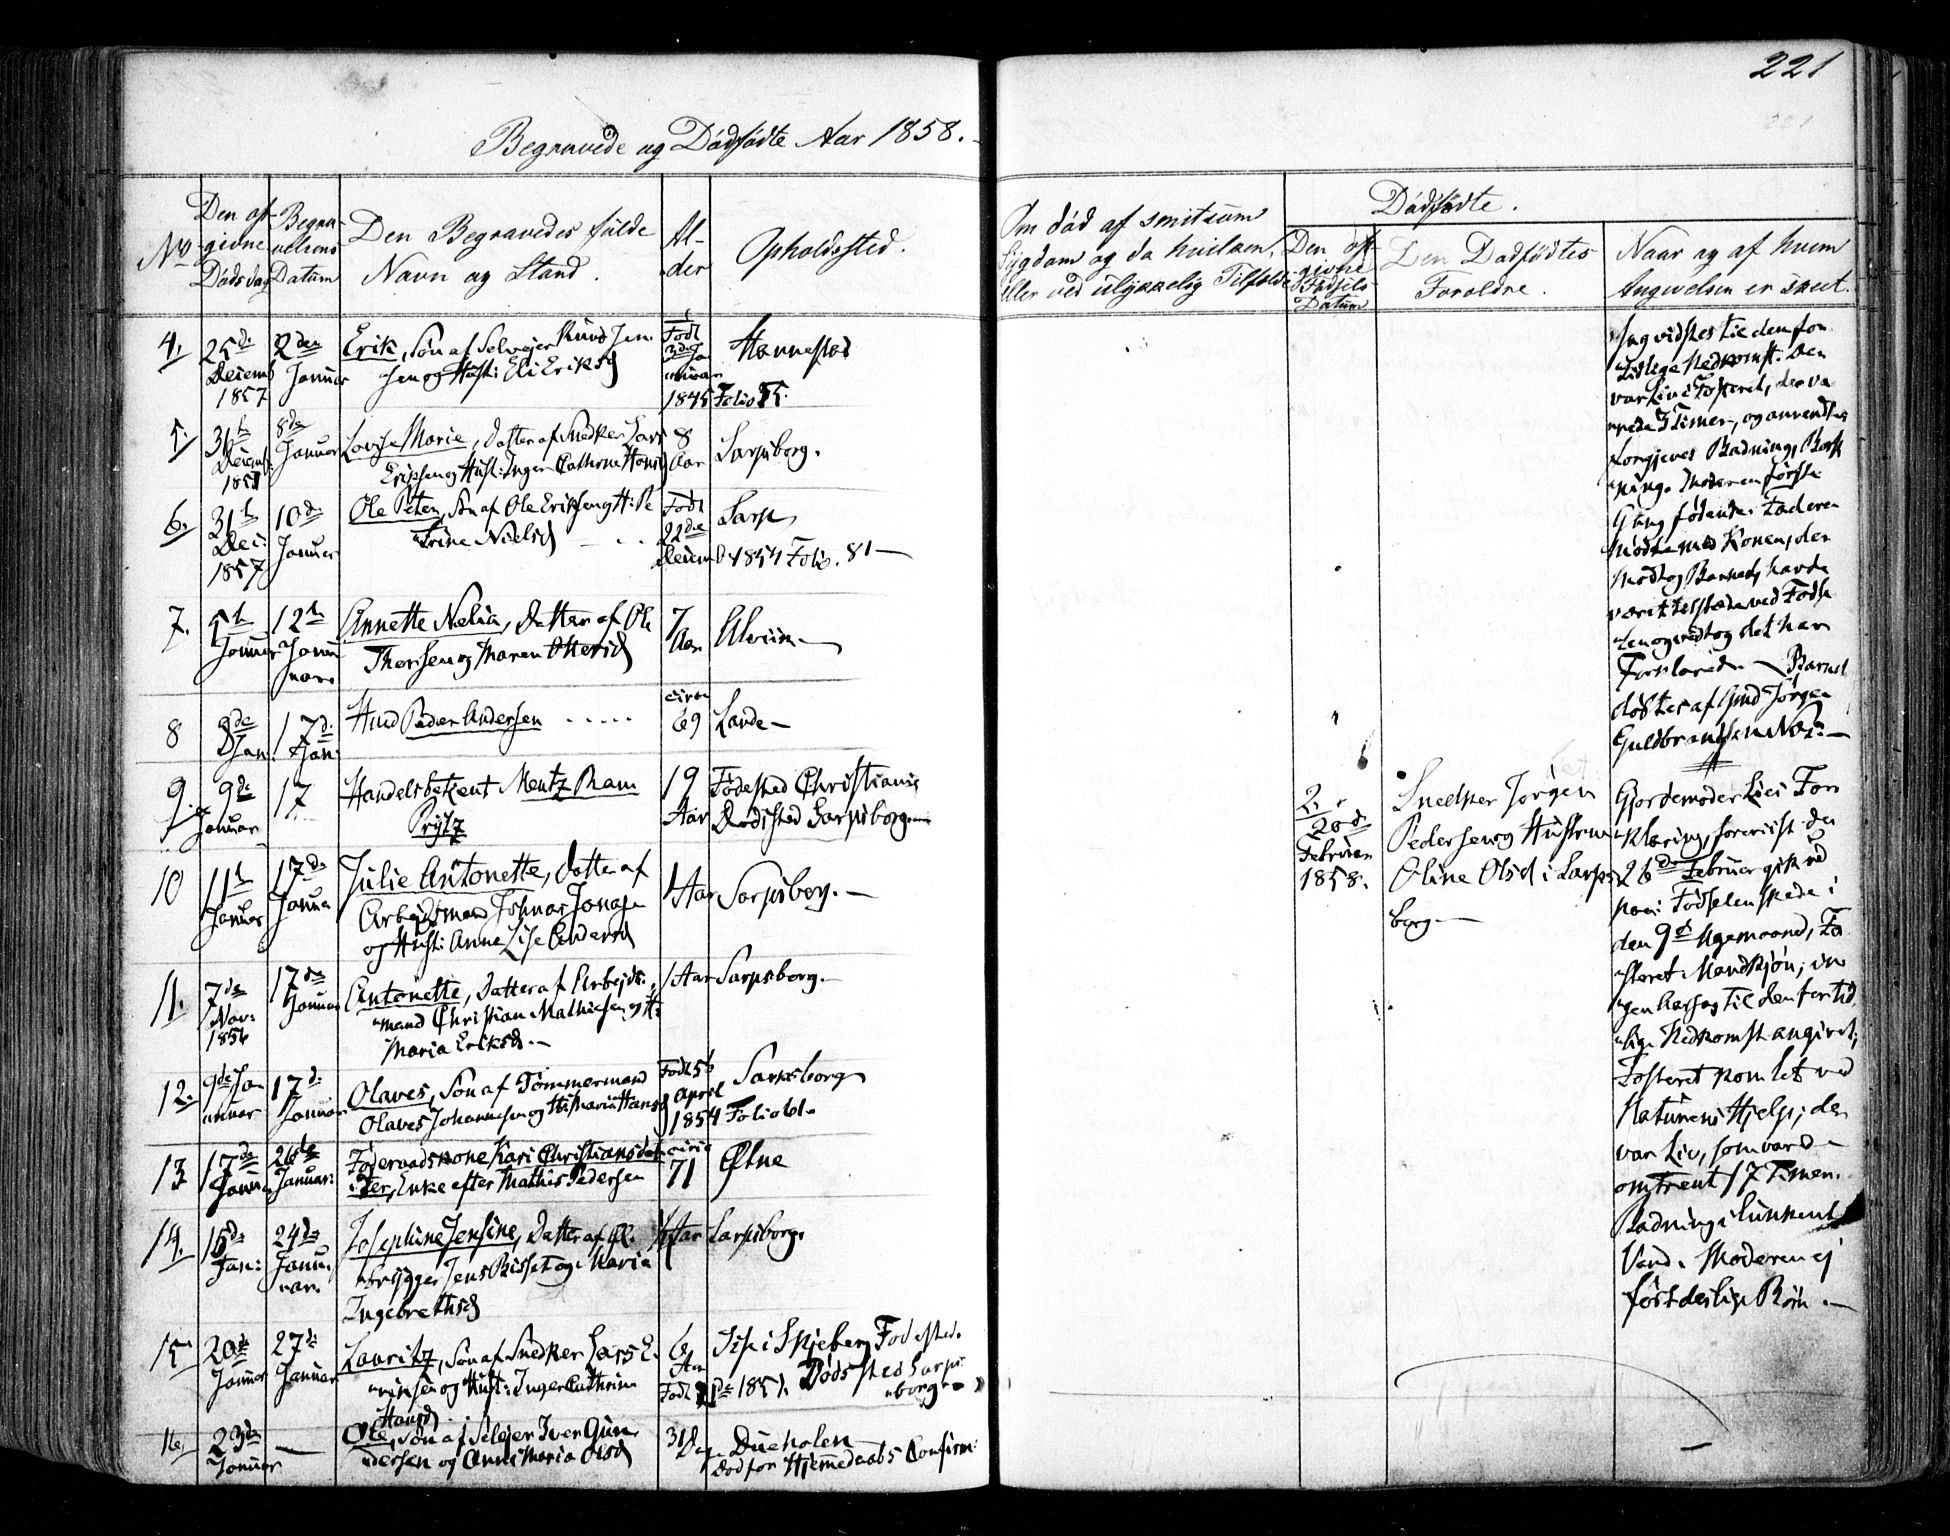 221
Begravede og Dødfødte Aar 1858.
No
Den op-
givne
Dødsdag
Begra-
velsens
Datum
Den Begravedes fulde
Navn og Stand.
Al-
der
Opholdssted.
Om død af smitsom
Sygdom og da hvilken,
eller ved ulykkelig Tilfælde
Dødfødte.
Den op-
givne
Fødsels
Datum
Den Dødfødtes
Forældre.
Naar og af hvem
Angivelsen er skeet.
4.
25de
Decemb
1857
2den
Januar
Erik, Søn af Selveier Knud Jen-
sen og Hust: Eli Eriksd
Født
3de Ja
nuar
1845 Folio 75.
Hannestad
5.
31te
Decemb:
1857
8de
Januar
Lovise Marie, Datter af Snedker Lars
Eriksen og Hust: Inger Cathrine Hansd
8
Aar
Sarpsborg.
6.
31te
Dec:
1857
10de
Januar
Ole Peter, Søn af Ole Eriksen og H: Pe
Trine Nielsd
Født
22de
Decemb 1854 Folio. 81
Sarp
7.
5te
Januar
12te
Janu
uar
Annette Nelia, Datter af Ole
Thorsen og Maren Ottersd
7
Aar
Alvim
8
8de
Jan:
17de
Jan:
Hmd Peder Andersen
circa
69
Lande
9.
9de
Januar
17
Handelsbetjent Mentz Ram
Prytz
19
Aar
Fødested Christiania
Dødssted Sarpsborg
10
11te
Januar
17de
Janua
Julie Antonette, Datter af
Arbeidsmand Johnas Jonas
og Hust: Anne Lise Andersd
1 Aar
Sarpsborg.
11.
7de
Nov:
1856
17de
Januar
Antonette, Datter af Arbejds-
mand Christian Mathiesen og H:
Maria Eriksd.
1 Aar
Sarpsborg.
12.
9de Ja
nuar
17de
Januar
Olaves, Søn af Tømmermand
Olaves Johannesen og H: Maria Hansd
Født 5te
April
1854 Folio
Sarpsborg
13
17de
Janu
26de
Januar:
Føderaadskone Kari Christiansdat-
ter, Enke efter Mathis Pedersen
circa
71
Østne
14.
16de
Jan:
24de
Janu-
uar.
Josephine Jensine, Datter af Øl-
brygger Jens Bisset og Maria
Ingebrethsd
Aar
Sarpsborg
15
20de
Januar
27de
Januar
Lauritz, Søn af Snedker Lars E-
riksen og Hust: Inger Cathrine
Hansd
6
Aar
Født 1851.
i Skjeberg Fødested.
Dødssted Sarps-
borg
16
23de
Januar
Ole, Søn af Selvejer Iver Gun-
dersen og Anne Maria Olsd
31 Dage
Dueholen
Død før Hjemmedaabs Confirm:
vidstes til den for-
tidlige Nedkomst. Den
var Liv i Fosteret, der va-
rede Timer, og anvendtes
forgjeves Badning, Børst-
ning. Moderen første
Gang fødende. Faderen
mødte med Konen, der
modtog Barnet, havde
været tilstæde ved Fødse-
len og vedtog det her
Forklarede. Barnet
døbtes af Gmd Jørgen
Guldbrandsen
2.
28de
Februar
1858.
Snedker Jørgen
Pedersen og Hustru
Oline Olsd i Sarps-
borg
Gjordemoder Lies For-
klaring, foreviist den
26de Februar gik ud
paa: Fødselen skede i
den 9de Ugemaaned, Fo-
steret Mandkjøn; in-
gen Aarsag til den fortid-
lige Nedkomst angivet;
Fosteret kom let ved
Naturens Hjelp; der
var Liv, som varede
omtrent 17 Timer.
Badning i lunkent
Vand. Moderen ej
førstdeslige Børn.